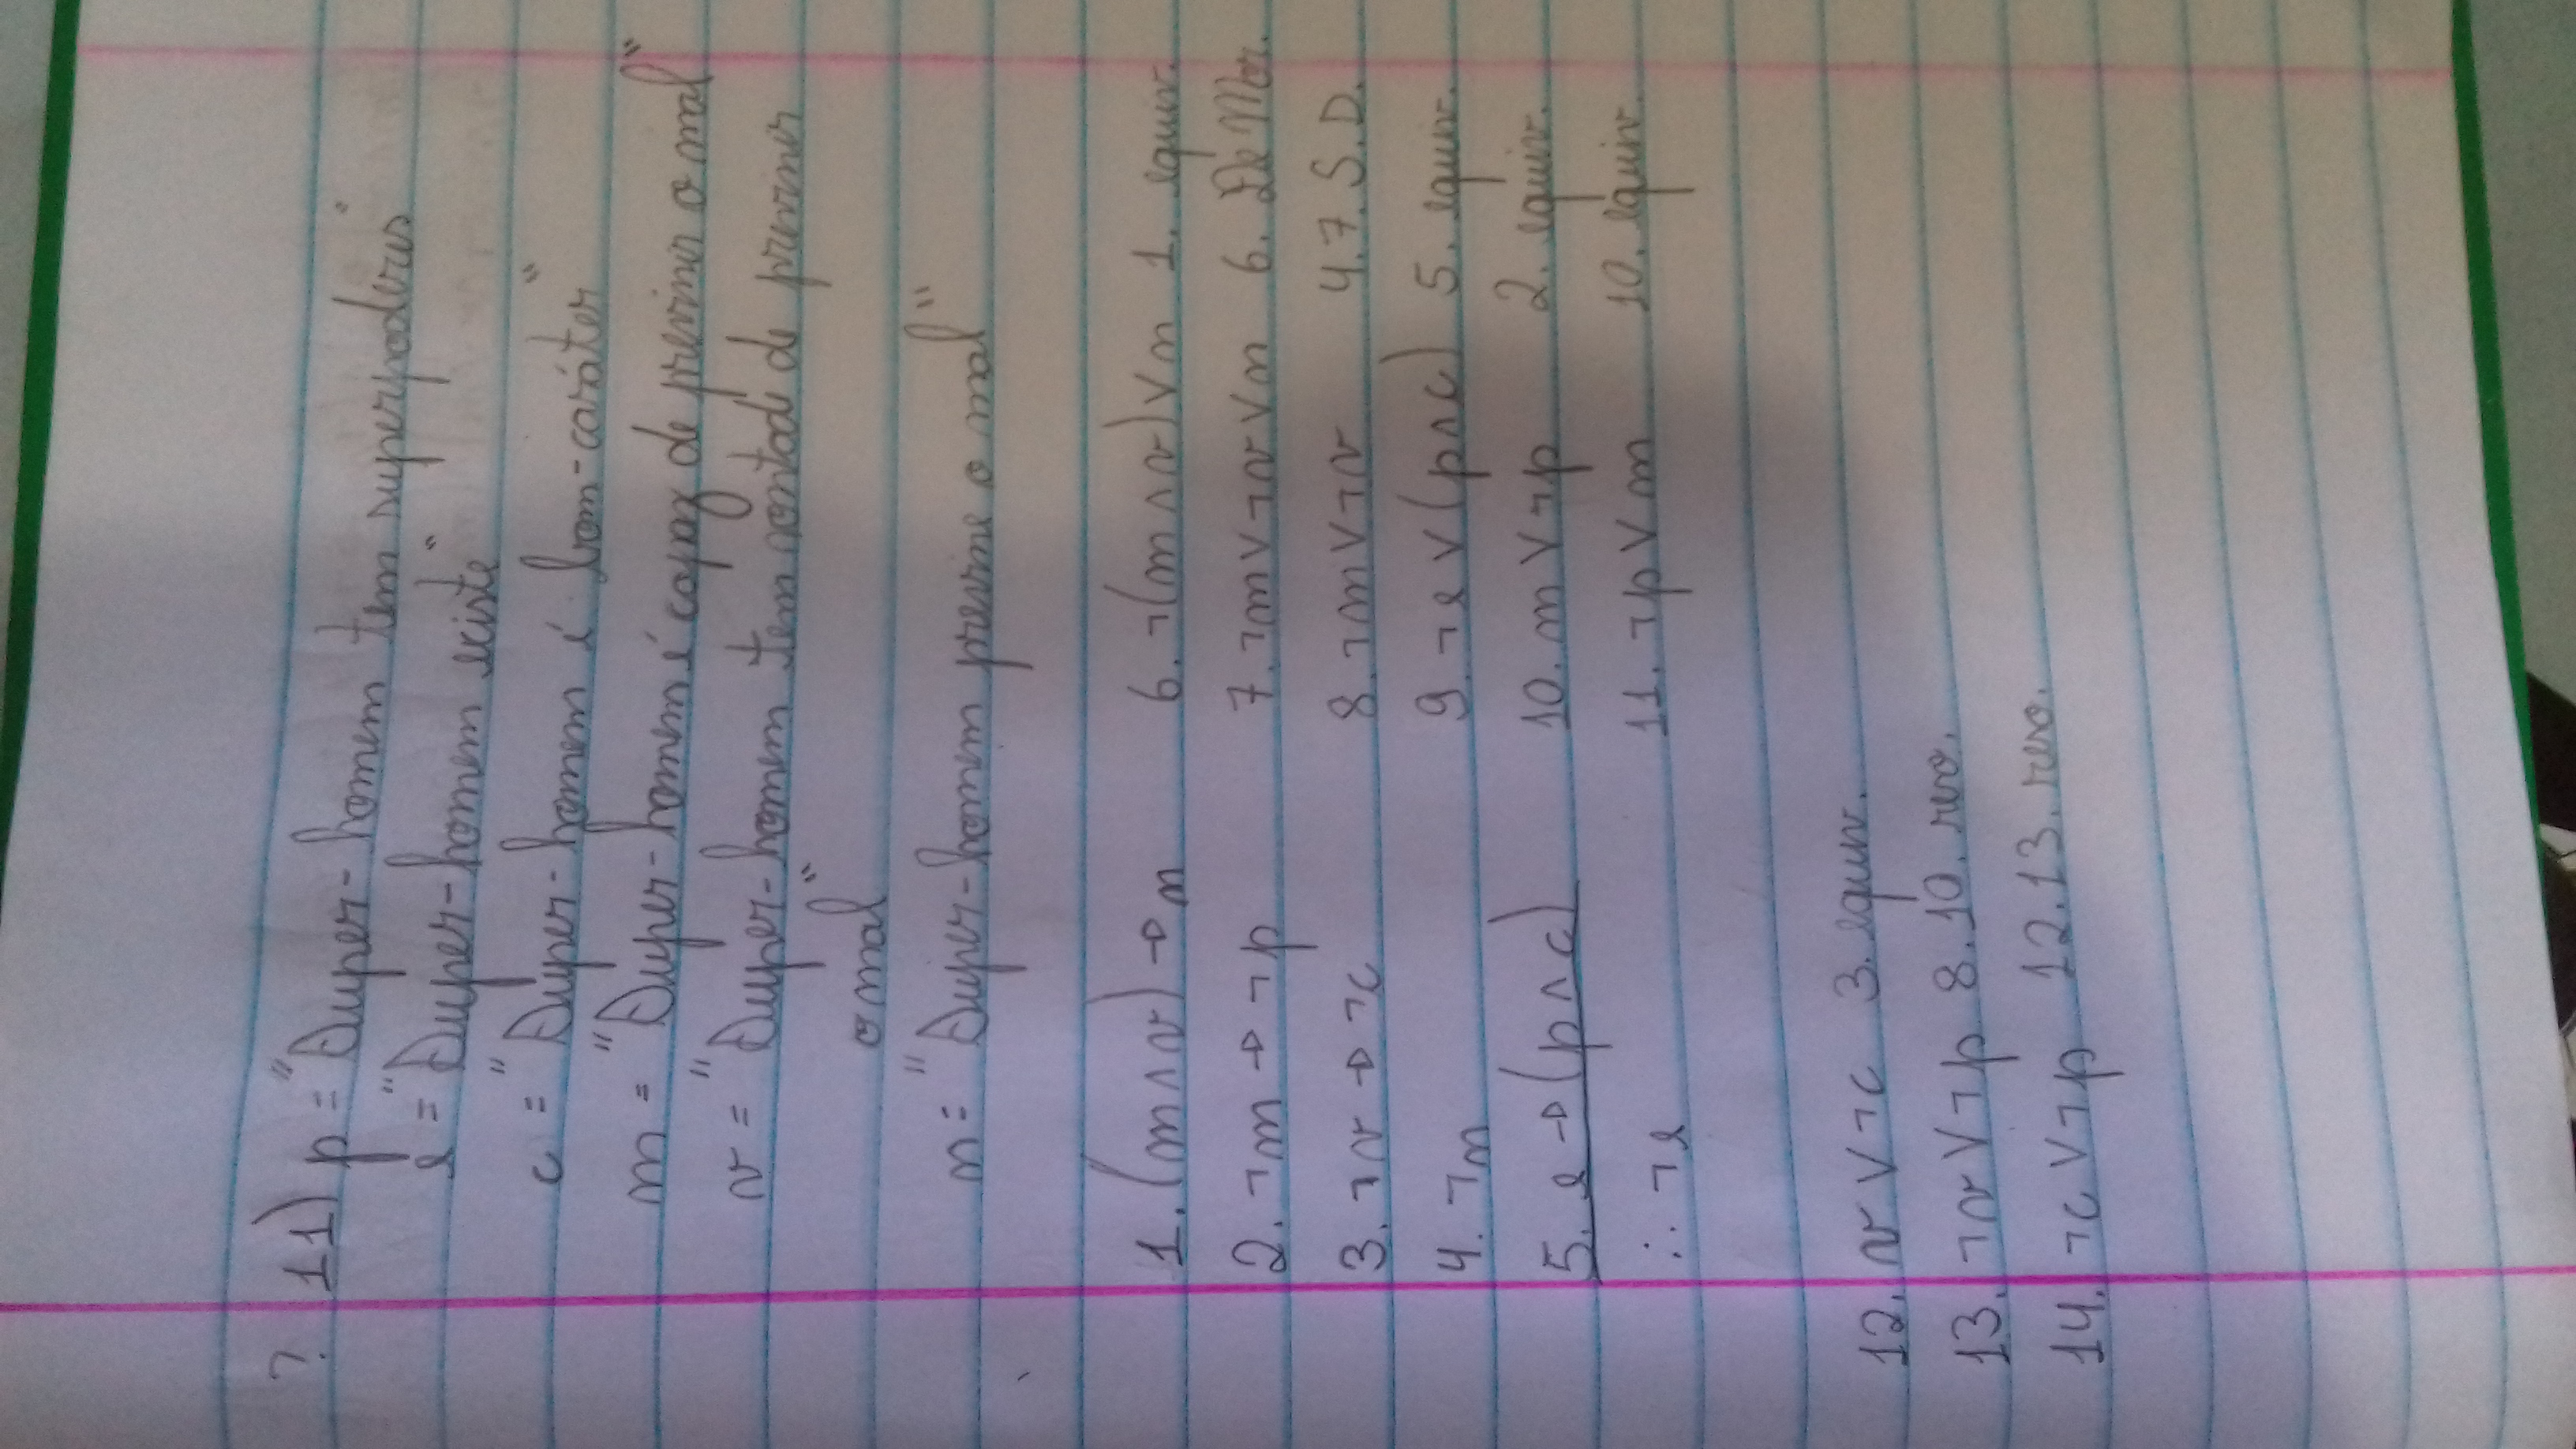 ? 11) p = "Super-homem tem superpoderes"
e = "Super-homem existe"
c = "Super-homem é bom-caráter"
m = "Super-homem é capaz de previnir o mal"
v = "Super-homem tem vontade de previnir
o mal"
n = "Super-homem previne o mal"
1. (m ∧ v) → n
2. ¬m → ¬p
3. ¬v → ¬c
4. ¬n
5. e → (p ∧ c)
∴ ¬e
6. ¬(m ∧ v) ∨ n 1. equiv.
7. ¬m ∨ ¬v ∨ n 6. De Mor.
8. ¬m ∨ ¬v 4.7. S.D.
9. ¬e ∨ (p ∧ c) 5. equiv.
10. m ∨ ¬p 2. equiv.
11. ¬p ∨ m 10. equiv.
12. v ∨ ¬c 3. equiv.
13. ¬v ∨ ¬p 8.10. reso.
14. ¬c ∨ ¬p 12.13. reso.